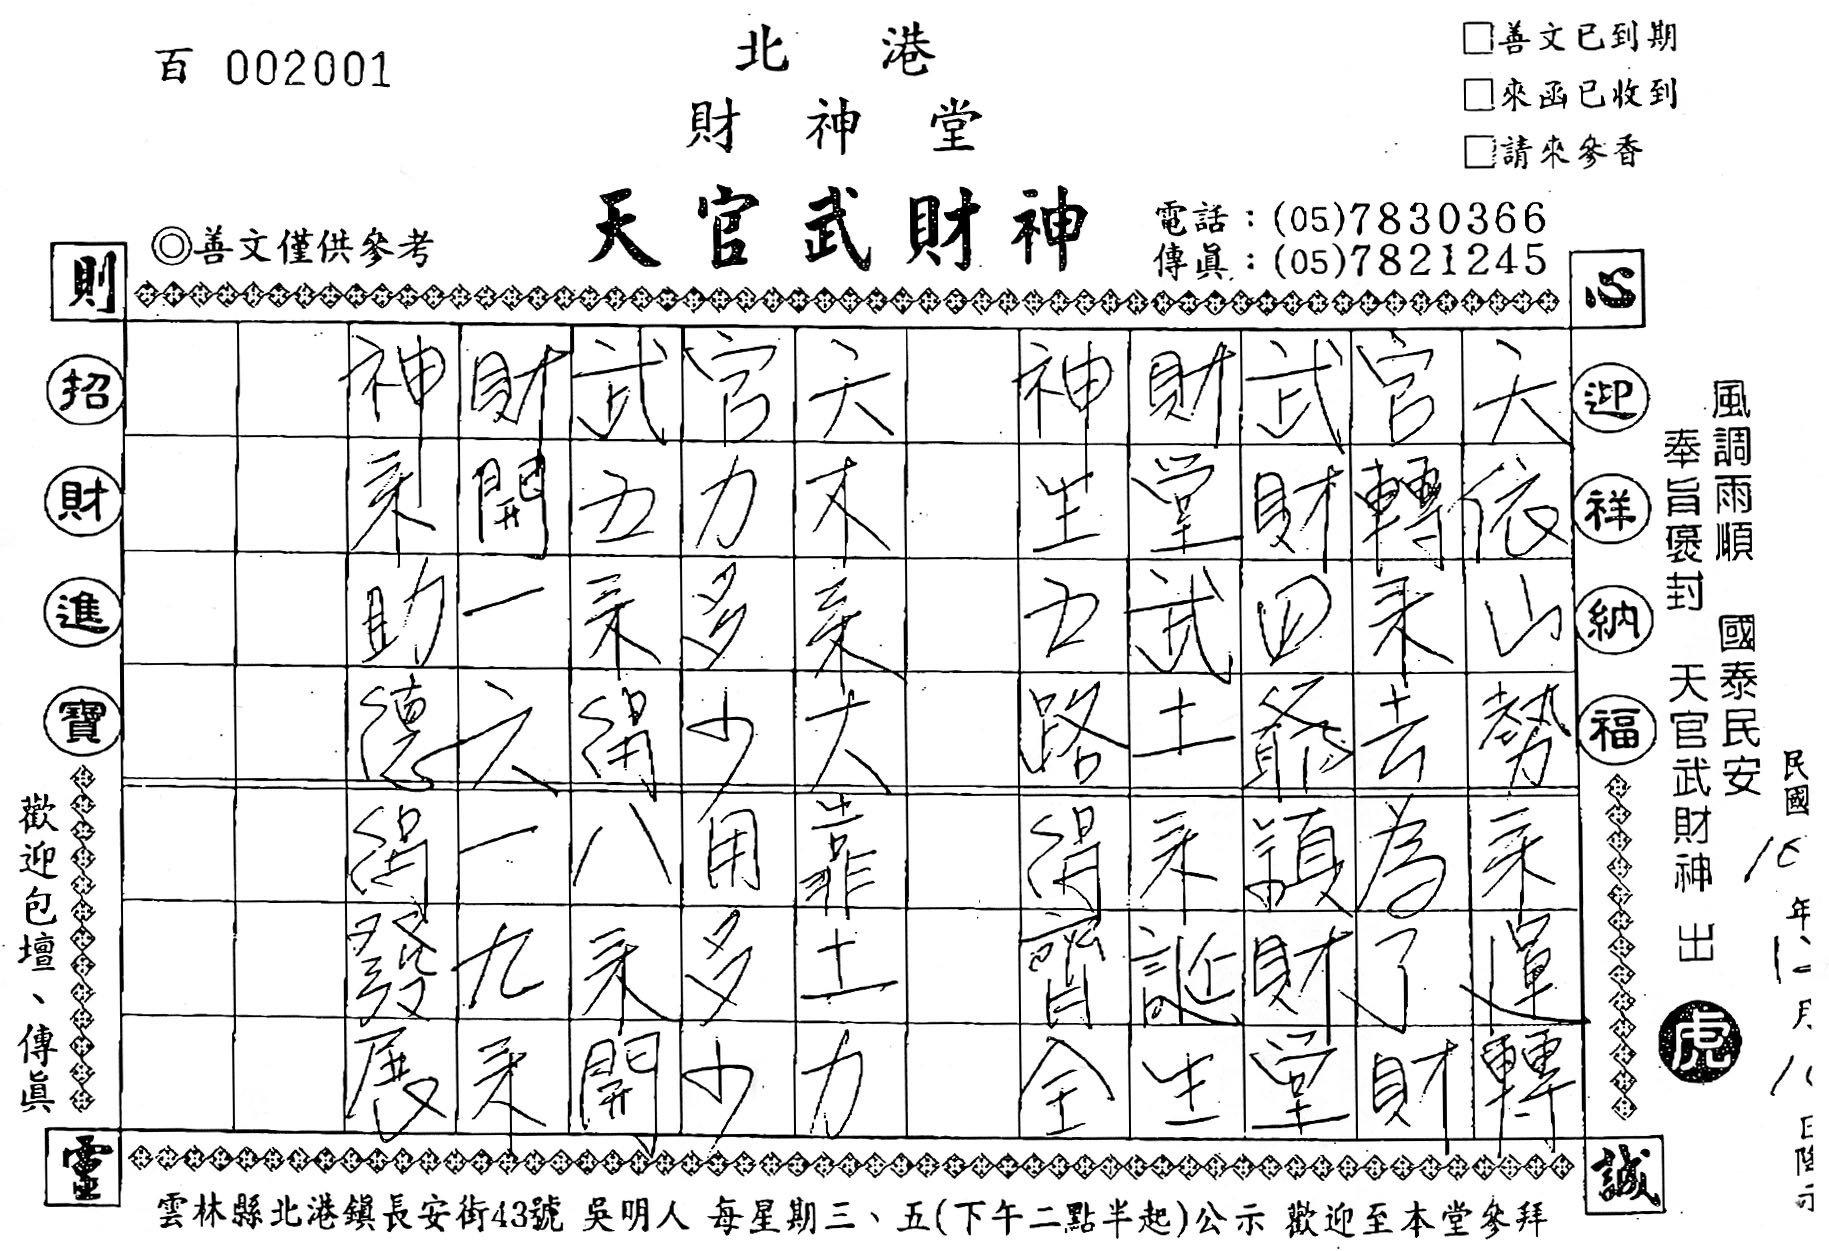 百 002001
北港
財神堂
天官武財神
□善文已到期
□來函已收到
□請來參香
◎善文僅供參考
電話：(05)7830366
傳眞：(05)7821245
心誠則靈
迎祥納福
招財進寶
風調雨順 國泰民安
奉旨褒封 天官武財神 出
虎
民國 年 月 日降示
天依山勢來運轉
官轉來去為了財
武財四爺領財堂
財堂武士來誕生
神生五路得齊全
天木來大靠士力
官力多少用多少
武五來得八來開
財開一六一九來
神來助德得發展
歡迎包壇、傳眞
雲林縣北港鎮長安街43號 吳明人 每星期三、五(下午二點半起)公示 歡迎至本堂參拜